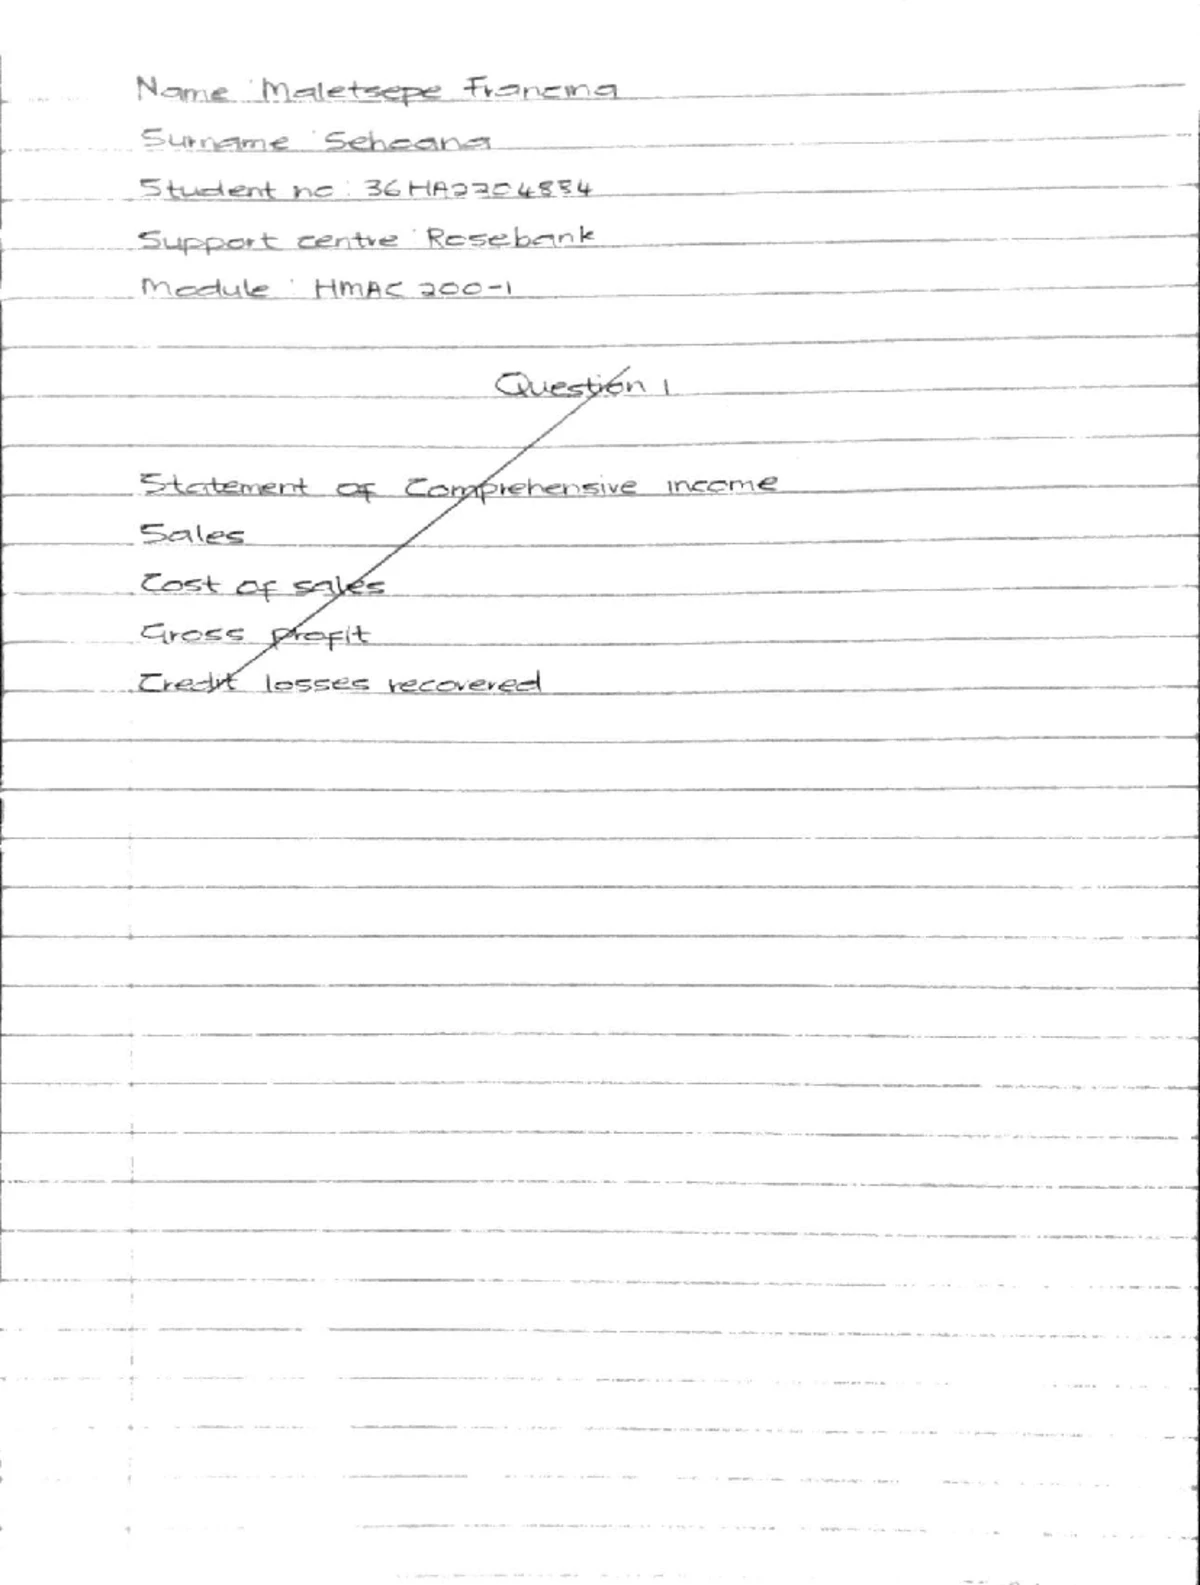 Name : Maletsepe Francina
Surname : Sehoana
Student no : 36HA2204884
Support centre : Rosebank
Module : HMAC 200-1
Question 1
Statement of Comprehensive income
Sales
Cost of sales
Gross profit
Credit losses recovered